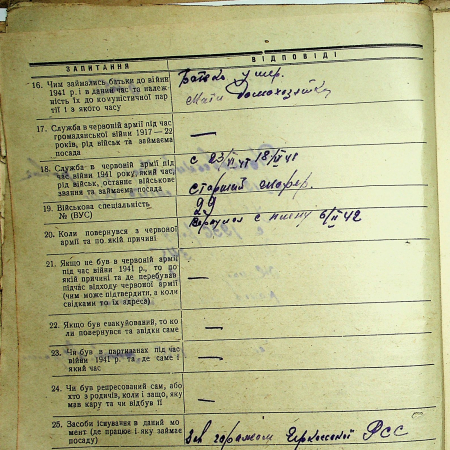 ЗАПИТАННЯ
ВІДПОВІДІ
16. Чим займались батьки до війни
1941 р. і в даний час та належ-
ність їх до комуністичної пар-
тії і з якого часу
Батько умер.
Мати домохозяйка
17. Служба в червоній армії під час
громадянської війни 1917—22
років, рід військ та займаєма
посада
—
18. Служба в червоній армії під
час війни 1941 року, який час,
рід військ, останнє військове
звання та займаєма посада
с 23/VI 41 18/IX 41
старший шофер.
19. Військова спеціальність
№ (ВУС)
29
20. Коли повернувся з червоної
армії та по якій причині
Вернулся с плену 6/II 42
21. Якщо не був в червоній армії
під час війни 1941 р., то по
якій причині та де перебував
підчас відходу червоної армії
(чим може підтвердити, а коли
свідками то їх адреса)
—
22. Якщо був евакуйований, то ко-
ли повернувся та звідки саме
—
23. Чи був в партизанах під час
війни 1941 р. та де саме і
який час
—
24. Чи був репресований сам, або
хто з родичів, коли і защо, яку
мав кару та чи відбув її
—
25. Засоби існування в даний мо-
мент (де працює і яку займає
посаду)
Зав гаражом Черкасской РСС